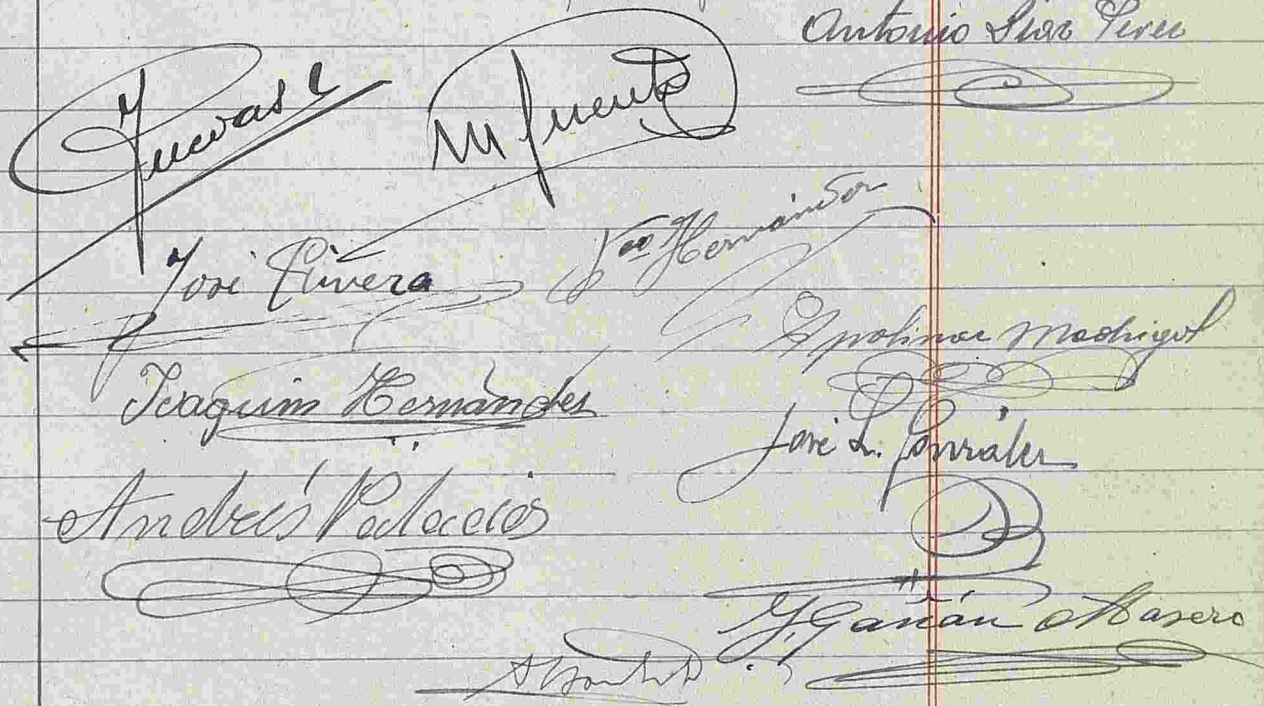 Antonio Diaz Perez
M Fuente
José Rivera
Fco Hernández
Apolinar Madrigal
Joaquim Hernández
José L. González
Andrés Palacios
J. Gañán Masero